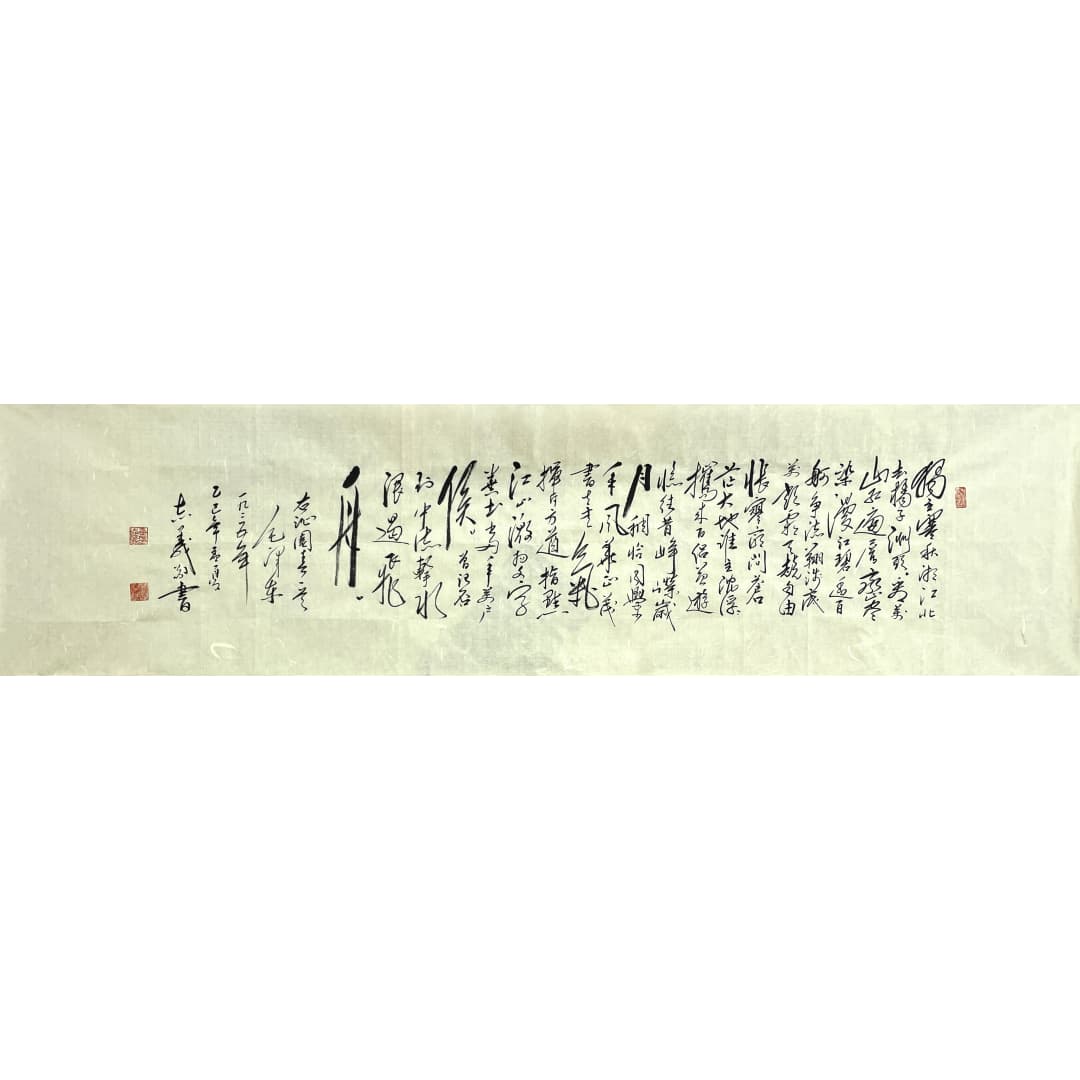 獨立寒秋湘江北
去橘子洲頭看萬
山紅遍層林盡
染漫江碧透百
舸争流鷹翔淺底
萬類霜天競自由
悵寥廓問蒼
茫大地誰主沉浮
攜來百侶曾遊
憶往昔崢嶸歲
月稠恰同學少
年風華正茂
書生意氣
揮斥方遒指點
江山激揚文字
糞土當年萬户
侯。曾记否
到中流擊水
浪遏飛
舟。
右沁園春
一九二五年
毛澤東
乙巳年
書